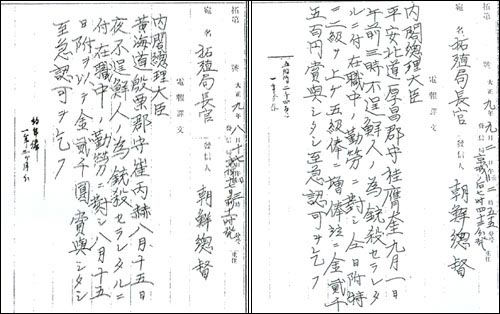 拓第 號 大正九年九月
宛名 拓殖局長官 發信人 朝鮮總督
電報譯文
内閣總理大臣
平安北道厚昌郡守桂膺奎九月一日
午前三時不逞鮮人ノ為銃殺セラレタ
ルニ付在職中ノ勤労ニ對シ仝日附特
ニ二級ヲ上ケ五級俸ニ増俸竝ニ金貳千
五百円賞與シタシ至急認可ヲ乞フ
拓第 號 大正九年八月
宛名 拓殖局長官 發信人 朝鮮總督
電報譯文
内閣總理大臣
黄海道殷栗郡守崔丙赫八月十五日
夜不逞鮮人ノ為銃殺セラレタルニ
付在職中ノ勤労ニ對シ八月十五
日附ヲ以テ金貳千圓賞與シタシ
至急認可ヲ乞フ